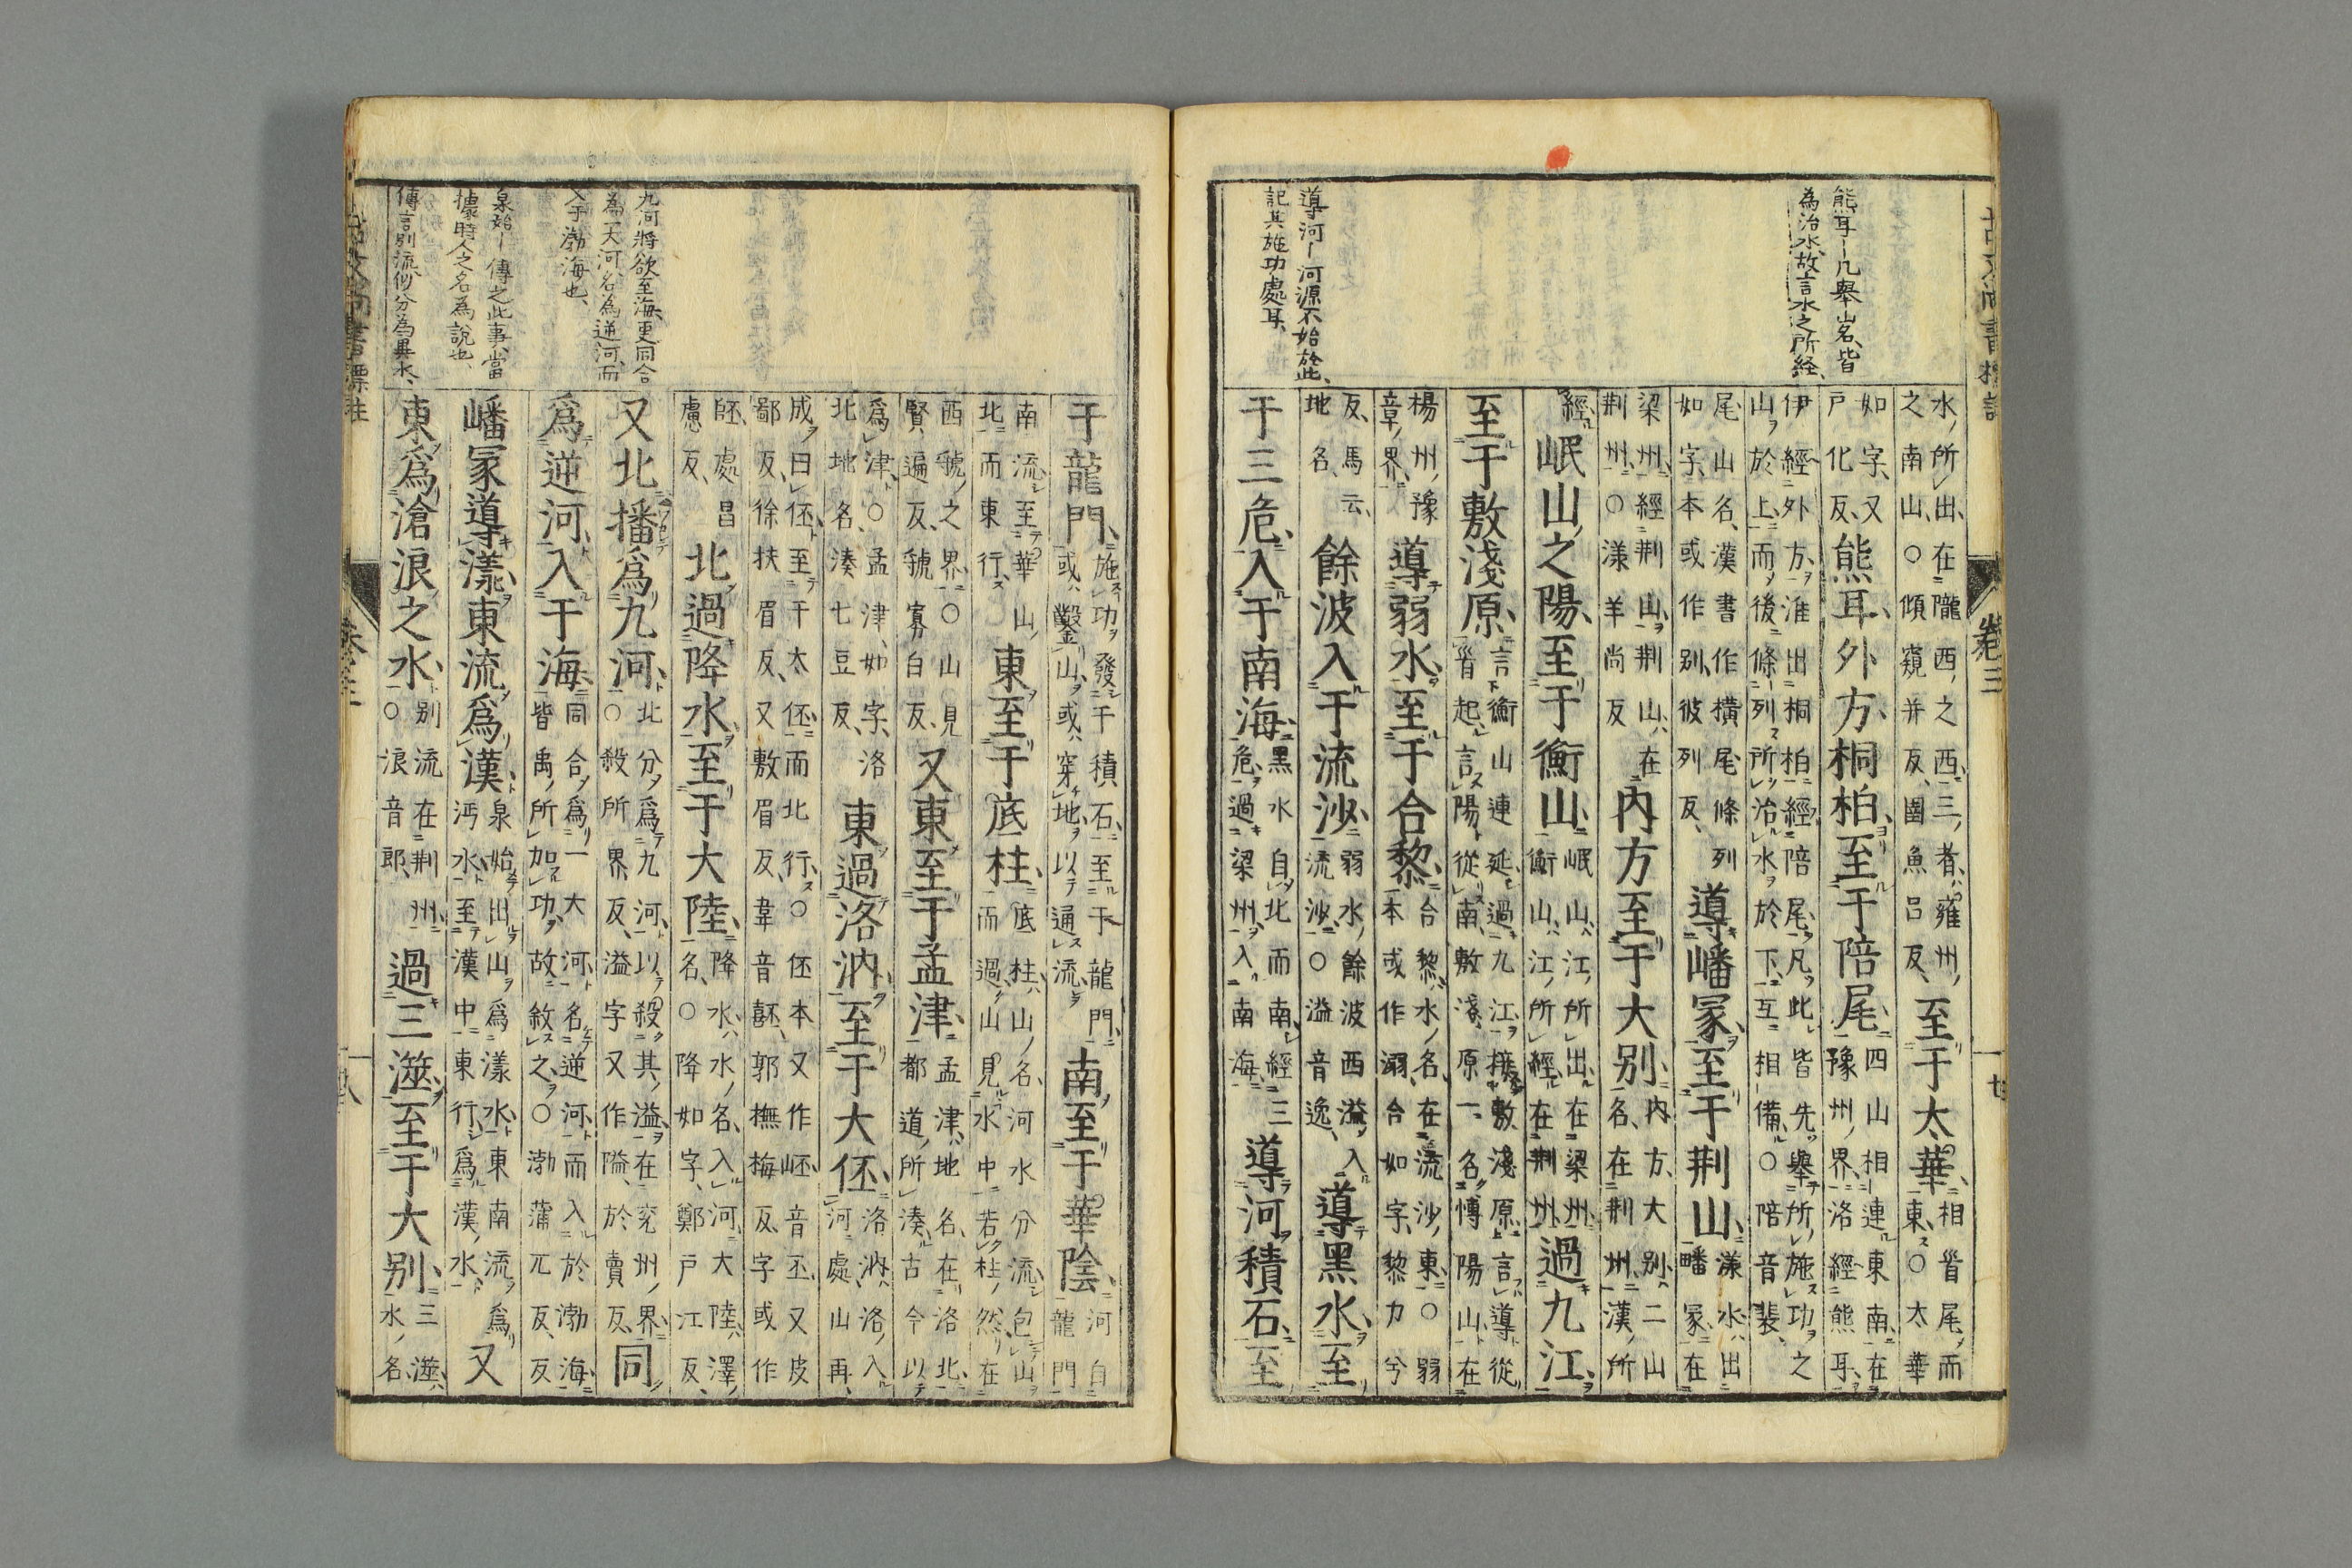 熊耳ー凡舉山名皆
為治水故言水之所経
導河ー河源不始於此
記其施功處耳
水所出在隴西之西三者雍州
之南山○傾窺并反圉魚呂反
至于太華
相首尾而
東○太華
如字又
戸化反
熊耳外方桐柏至于陪尾
四山相連東南在
豫州界洛經熊耳
伊經外方淮出桐柏經陪尾凡此皆先舉所施功之
山於上而後條列所治水於下互相備○陪音裴
尾山名漢書作橫尾條列
如字本或作别彼列反
導嶓冢至于荆山
漾水出
嶓冢在
梁州經荆山荆山在
荆州○漾羊尚反
內方至于大别
內方大别二山
名在荆州漢所
經
岷山之陽至于衡山
岷山江所出在梁州
衡山江所經在荆州
過九江
至于敷淺原
言衡山連延過九江接敷淺原言導從
首起言陽從南敷淺原一名博陽山在
楊州豫
章界
導弱水至于合黎
合黎水名在流沙東○弱
本或作溺合如字黎力兮
反馬云
地名
餘波入于流沙
弱水餘波西溢入
流沙○溢音逸
導黑水至
于三危入于南海
黑水自北而南經三
危過梁州入南海
導河積石至
古文尚書標註
卷三
九河將欲至海更同合
為一大河名為逆河而
入于渤海也
泉始ー傳之此事當
據時人之名為說也
傳言別流似分為異水
于龍門
施功發于積石至于龍門
或鑿山或穿地以通流
南至于華陰
河自
龍門
南流至華山
北而東行
東至于底柱
底柱山名河水分流包山
而過山見水中若柱然在
西虢之界○山見
賢遍反虢寡白反
又東至于孟津
孟津地名在洛北
都道所湊古今以
爲津○孟津如字洛
北地名湊七豆反
東過洛汭至于大伾
洛汭洛入
河處山再
成曰伾至于太伾而北行○伾本又作岯音丕又皮
鄙反徐扶眉反又敷眉反韋音嚭郭撫梅反字或作
處昌
慮反
北過降水至于大陸
降水水名入河大陸澤
名○降如字鄭戸江反
又北播爲九河
北分爲九河以殺其溢在兖州界
○殺所界反溢字又作隘於賣反
同
爲逆河入于海
同合爲一大河名逆河而入於渤海
皆禹所加功故敘之○渤蒲兀反反
嶓冢導漾東流爲漢
泉始出山爲漾水東南流爲
沔水至漢中東行爲漢水
又
東爲滄浪之水
别流在荆州
○浪音郎
過三澨至于大别
三澨
水名